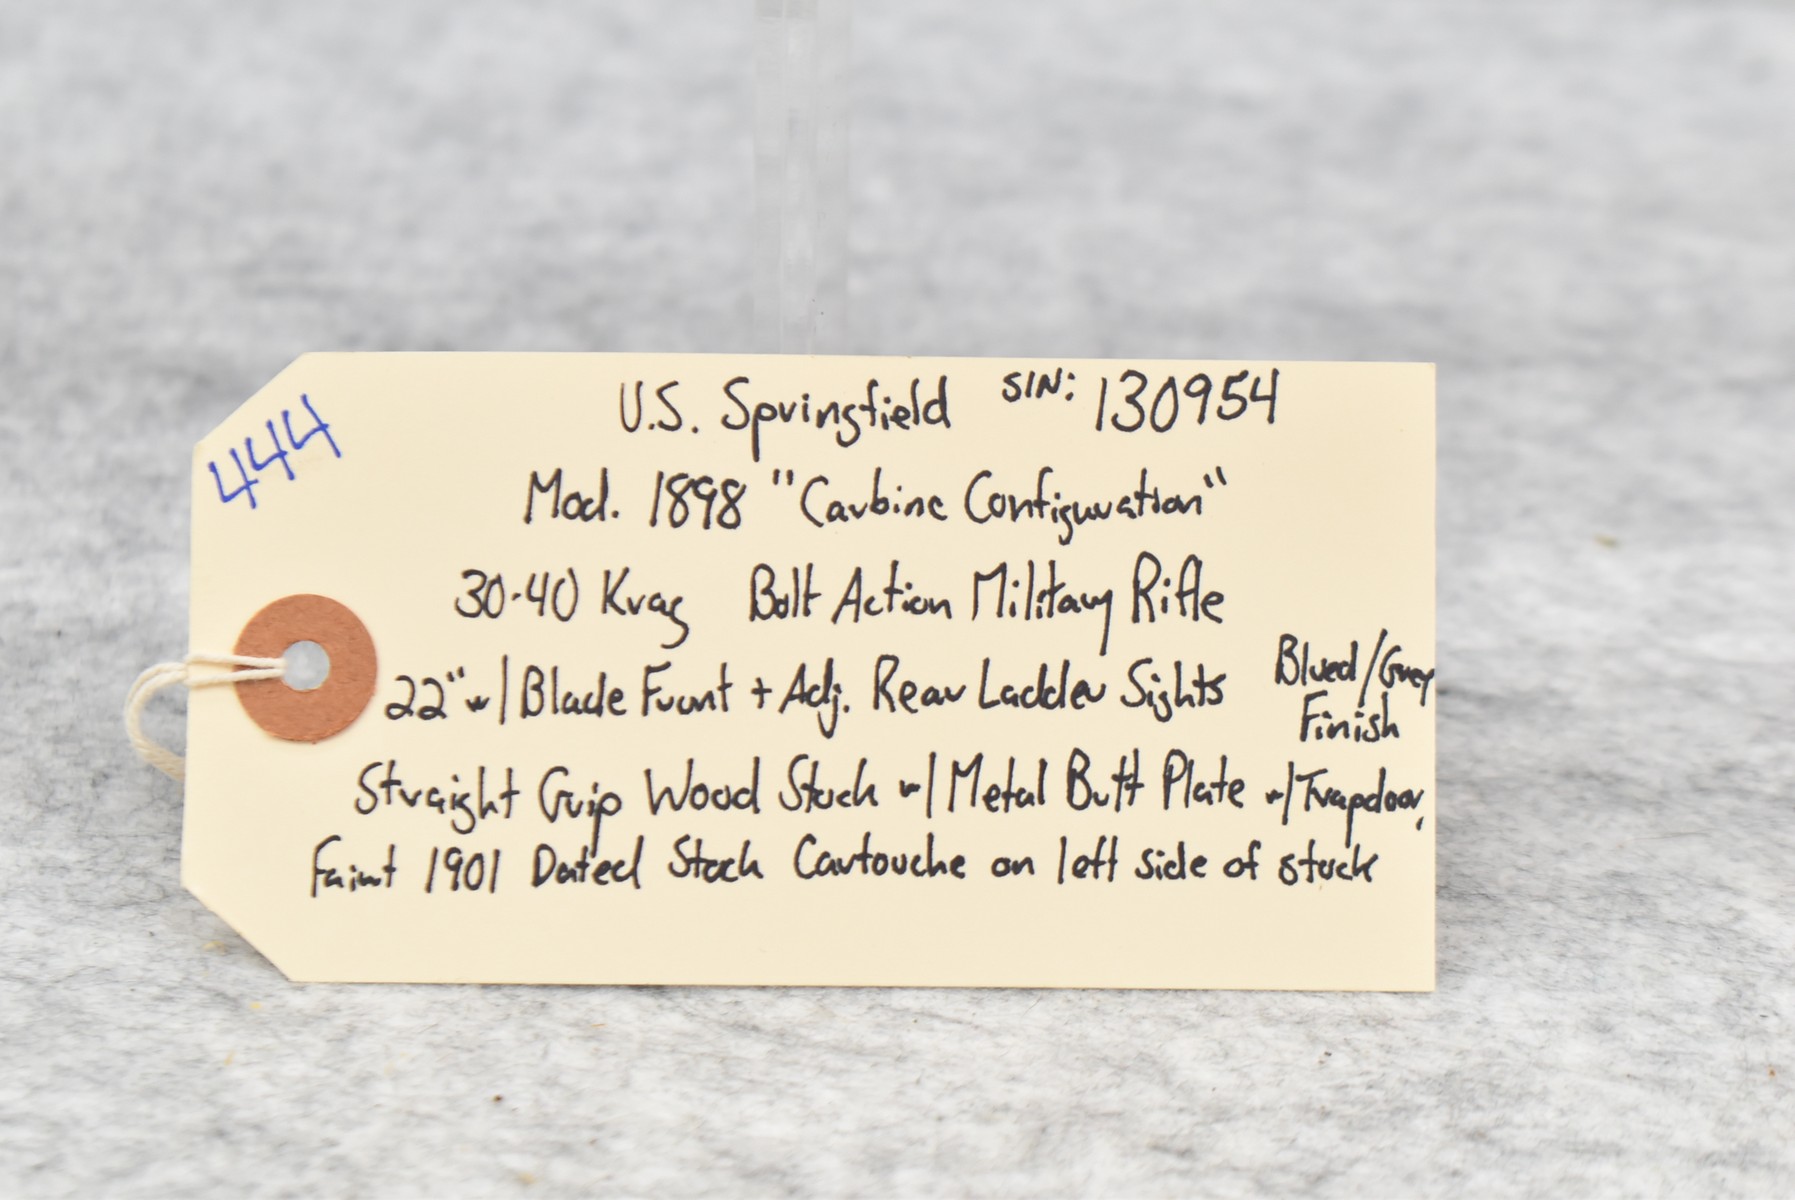 444
U.S. Springfield S/N: 130954
Mod. 1898 "Carbine Configuration"
30-40 Krag Bolt Action Military Rifle
22" w/ Blade Front + Adj. Rear Ladder Sights
Blued/Grey
Finish
Straight Grip Wood Stock w/ Metal Butt Plate w/ Trapdoor,
Faint 1901 Dated Stock Cartouche on left side of stock